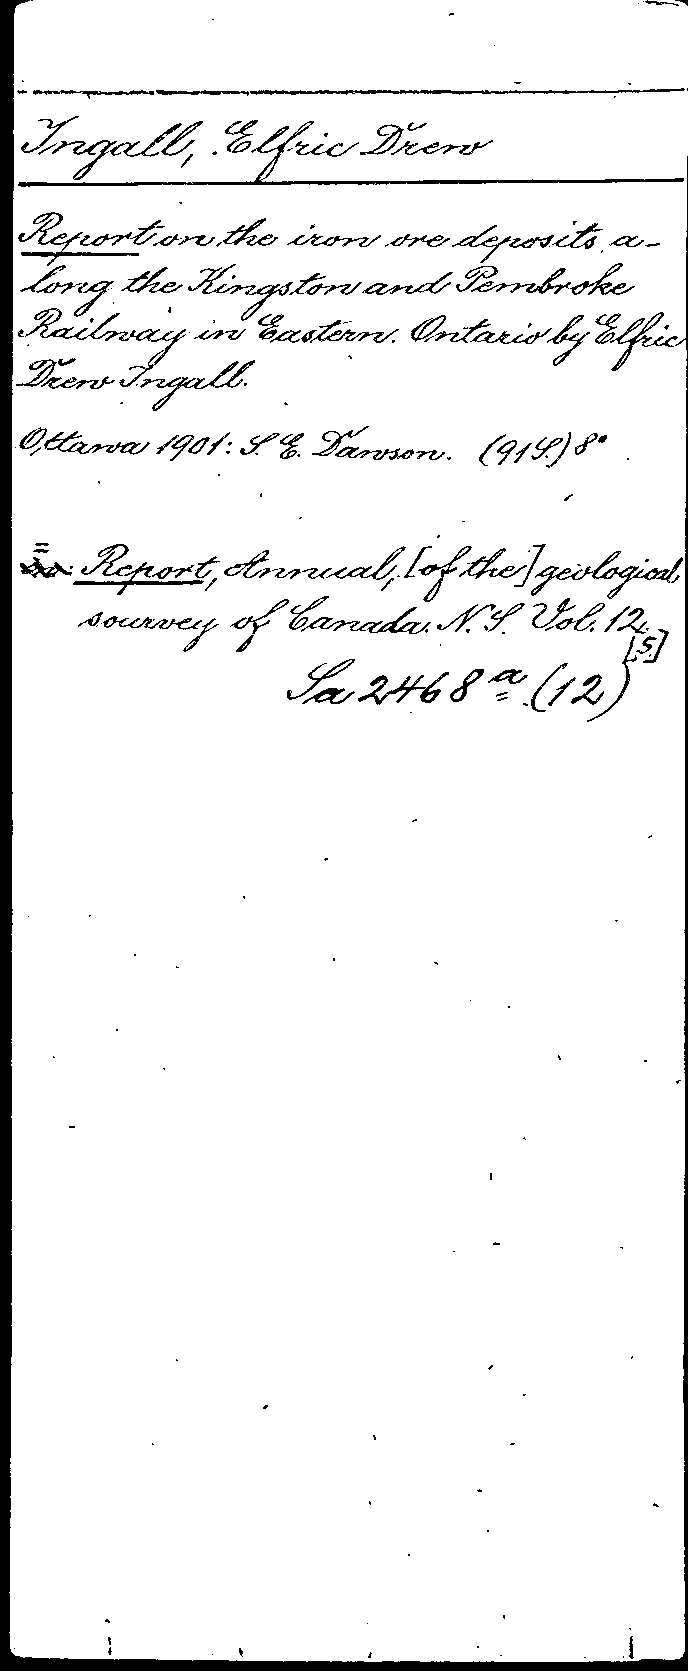 Ingall, Elfric Drew
Report on the iron ore deposits a-
long the Kingston and Pembroke
Railway in Eastern. Ontario by Elfric
Drew Ingall.
Ottawa 1901: S. E. Dawson. (91 S.) 8°
= Report, Annual, [of the] geological
sourvey of Canada. N. S. Vol. 12.
[S.]
Sa 2468 a (12)